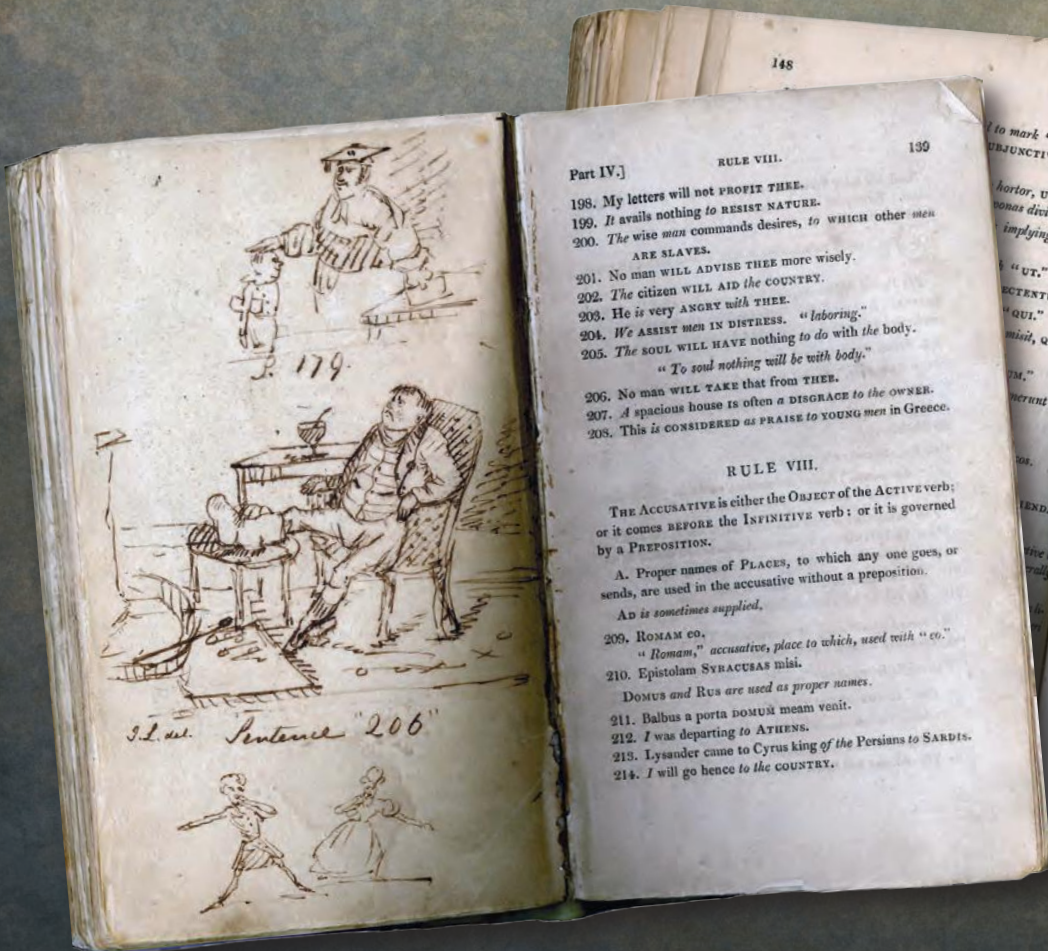 P. 179.
J.L. del. Sentence "206"
Part IV.] RULE VIII. 139
198. My letters will not PROFIT THEE.
199. It avails nothing to RESIST NATURE.
200. The wise man commands desires, to WHICH other men
ARE SLAVES.
201. No man WILL ADVISE THEE more wisely.
202. The citizen WILL AID the COUNTRY.
203. He is very ANGRY with THEE.
204. We ASSIST men IN DISTRESS. "laboring."
205. The SOUL WILL HAVE nothing to do with the body.
"To soul nothing will be with body."
206. No man WILL TAKE that from THEE.
207. A spacious house IS often a DISGRACE to the OWNER.
208. This is CONSIDERED as PRAISE to YOUNG men in Greece.
RULE VIII.
THE ACCUSATIVE is either the OBJECT of the ACTIVE verb;
or it comes BEFORE the INFINITIVE verb: or it is governed
by a PREPOSITION.
A. Proper names of PLACES, to which any one goes, or
sends, are used in the accusative without a preposition.
AD is sometimes supplied.
209. ROMAM eo.
"Romam," accusative, place to which, used with "eo."
210. Epistolam SYRACUSAS misi.
DOMUS and RUS are used as proper names.
211. Balbus a porta DOMUM meam venit.
212. I was departing to ATHENS.
213. Lysander came to Cyrus king of the Persians to SARDIS.
214. I will go hence to the COUNTRY.
148
to mark
hortor,
implying
"UT."
"QUI."
misit,